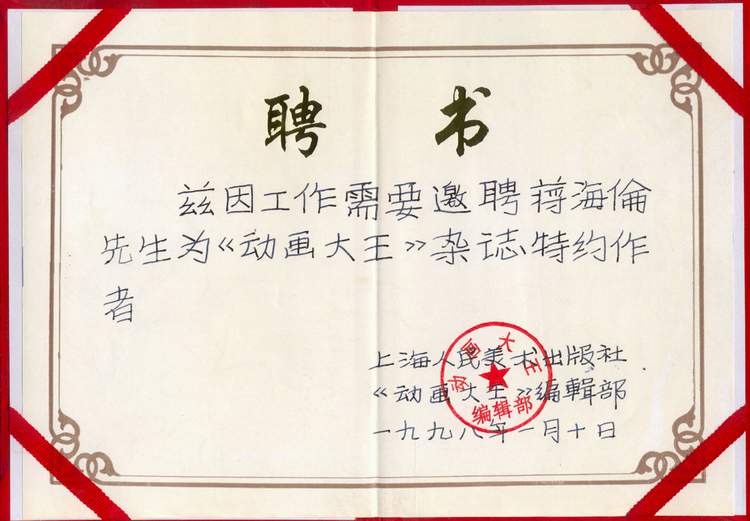 聘书
兹因工作需要邀聘蒋海倫
先生为《动画大王》杂志特约作
者
上海人民美术出版社
《动画大王》编輯部
一九九八年一月十日
动画大王
编辑部